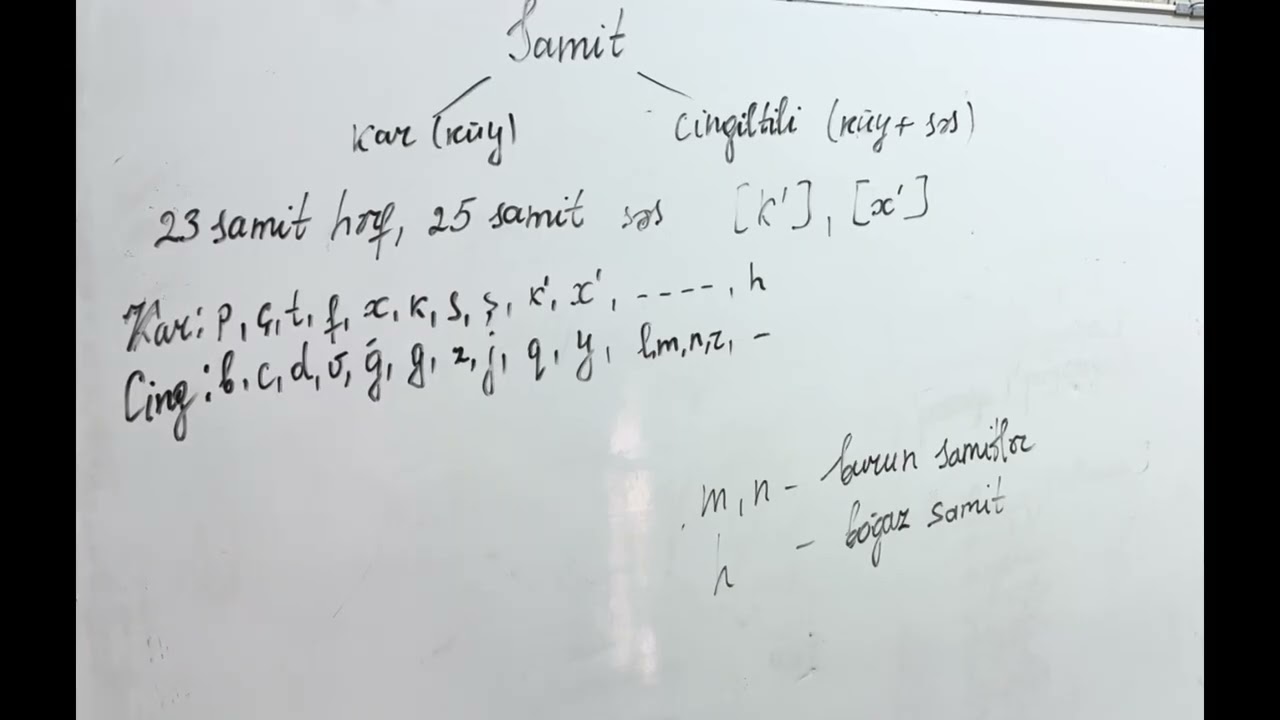 Samit
Kar (küy) Cingiltili (küy + səs)
23 samit hərf, 25 samit səs [k'], [x']
Kar: p, ç, t, f, x, k, s, ş, k', x', - - - -, h
Cing: b, c, d, v, ğ, g, z, j, q, y, l, m, n, r, -
m, n - burun samitlər
h - boğaz samit